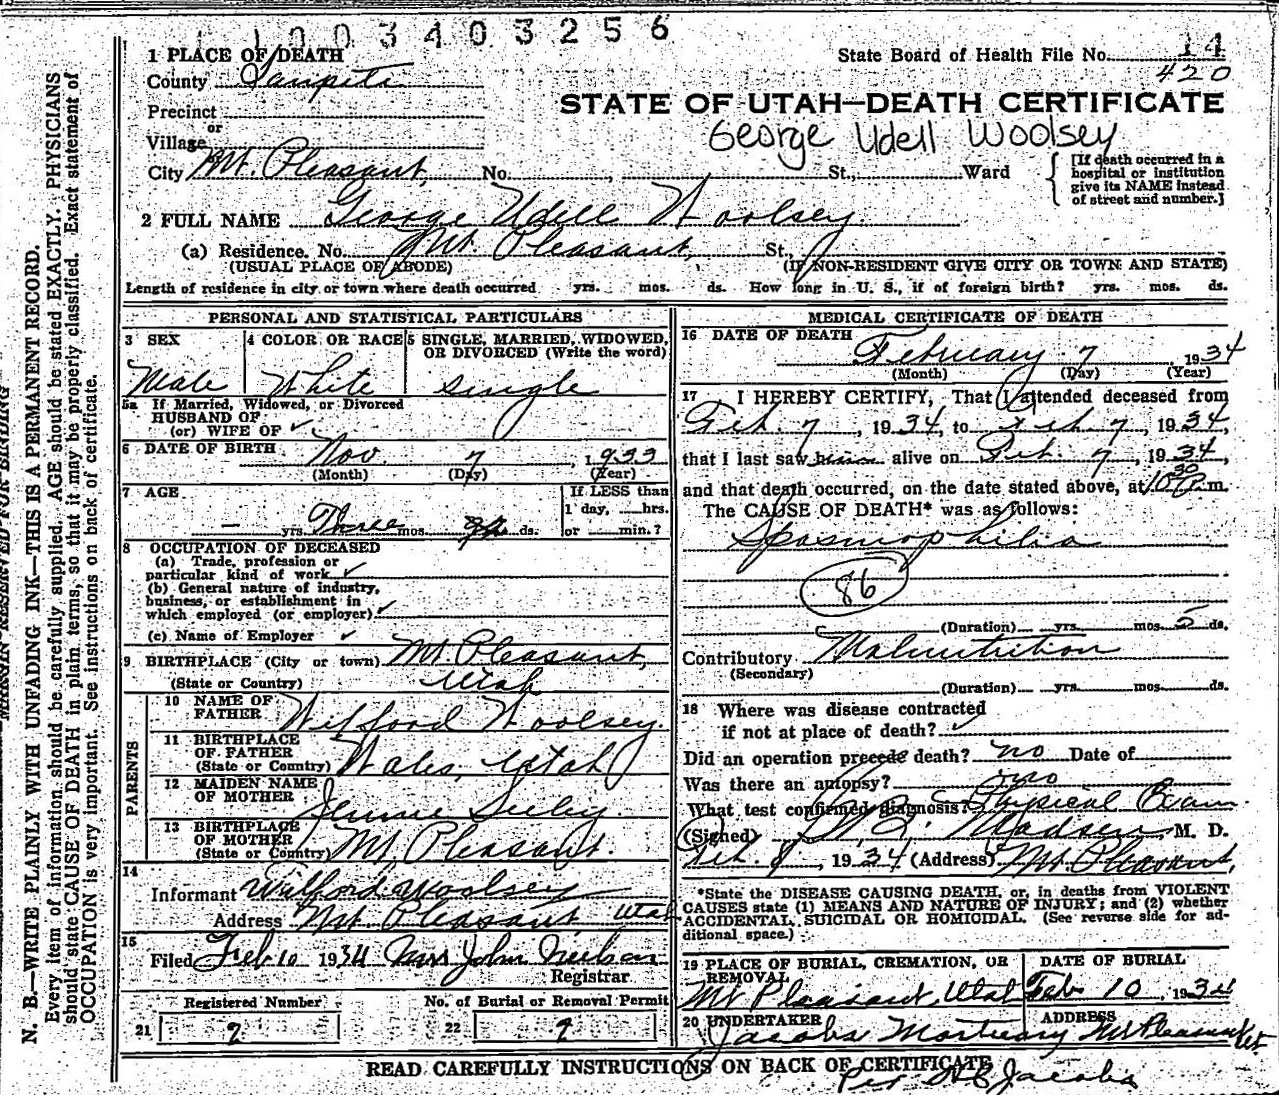 1003403256
1 PLACE OF DEATH
State Board of Health File No. 14
County Sanpete
420
Precinct
STATE OF UTAH—DEATH CERTIFICATE
or
Village
George Udell Woolsey
City Mt. Pleasant, No. , St., Ward
[If death occurred in a
hospital or institution
give its NAME instead
of street and number.]
2 FULL NAME George Udell Woolsey
(a) Residence. No. Mt. Pleasant, St.,
(USUAL PLACE OF ABODE) (IF NON-RESIDENT GIVE CITY OR TOWN AND STATE)
Length of residence in city or town where death occurred yrs. mos. ds. How long in U. S., if of foreign birth? yrs. mos. ds.
PERSONAL AND STATISTICAL PARTICULARS
3 SEX 4 COLOR OR RACE 5 SINGLE, MARRIED, WIDOWED,
OR DIVORCED (Write the word)
Male White single
5a If Married, Widowed, or Divorced
HUSBAND OF
(or) WIFE OF ✓
6 DATE OF BIRTH Nov. 7, 1933
(Month) (Day) (Year)
7 AGE If LESS than
1 day, hrs.
— yrs. Three mos. ds. or min.?
8 OCCUPATION OF DECEASED
(a) Trade, profession or
particular kind of work ✓
(b) General nature of industry,
business, or establishment in
which employed (or employer) ✓
(c) Name of Employer ✓
9 BIRTHPLACE (City or town) Mt. Pleasant,
(State or Country) Utah
PARENTS
10 NAME OF
FATHER Wilford Woolsey
11 BIRTHPLACE
OF FATHER
(State or Country) Wales, Utah
12 MAIDEN NAME
OF MOTHER Jennie Seeley
13 BIRTHPLACE
OF MOTHER
(State or Country) Mt. Pleasant.
14
Informant Wilford Woolsey
Address Mt. Pleasant, Utah
15
Filed Feb 10 1934 Mrs John Neilson
Registrar
Registered Number No. of Burial or Removal Permit
21 9 22 9
MEDICAL CERTIFICATE OF DEATH
16 DATE OF DEATH
February 7, 1934
(Month) (Day) (Year)
17 I HEREBY CERTIFY, That I attended deceased from
Feb. 7, 1934, to Feb. 7, 1934,
that I last saw him alive on Feb. 7, 1934,
and that death occurred, on the date stated above, at 10 30 P.m.
The CAUSE OF DEATH* was as follows:
Spasmophilia
86
(Duration) yrs. mos. 5 ds.
Contributory Malnutrition
(Secondary)
(Duration) yrs. mos. ds.
18 Where was disease contracted
if not at place of death? ✓
Did an operation precede death? no Date of
Was there an autopsy? no
What test confirmed diagnosis? Physical Exam.
(Signed) Madsen M. D.
Feb. 8, 1934 (Address) Mt. Pleasant,
*State the DISEASE CAUSING DEATH, or, in deaths from VIOLENT
CAUSES state (1) MEANS AND NATURE OF INJURY; and (2) whether
ACCIDENTAL, SUICIDAL OR HOMICIDAL. (See reverse side for ad-
ditional space.)
19 PLACE OF BURIAL, CREMATION, OR
REMOVAL DATE OF BURIAL
Mt Pleasant, Utah Feb 10, 1934
20 UNDERTAKER ADDRESS
Jacobs Mortuary Mt Pleasant Ut.
READ CAREFULLY INSTRUCTIONS ON BACK OF CERTIFICATE
Per Jacobs
MARGIN RESERVED FOR BINDING
N. B.—WRITE PLAINLY WITH UNFADING INK—THIS IS A PERMANENT RECORD.
Every item of information should be carefully supplied. AGE should be stated EXACTLY. PHYSICIANS
should state CAUSE OF DEATH in plain terms, so that it may be properly classified. Exact statement of
OCCUPATION is very important. See instructions on back of certificate.